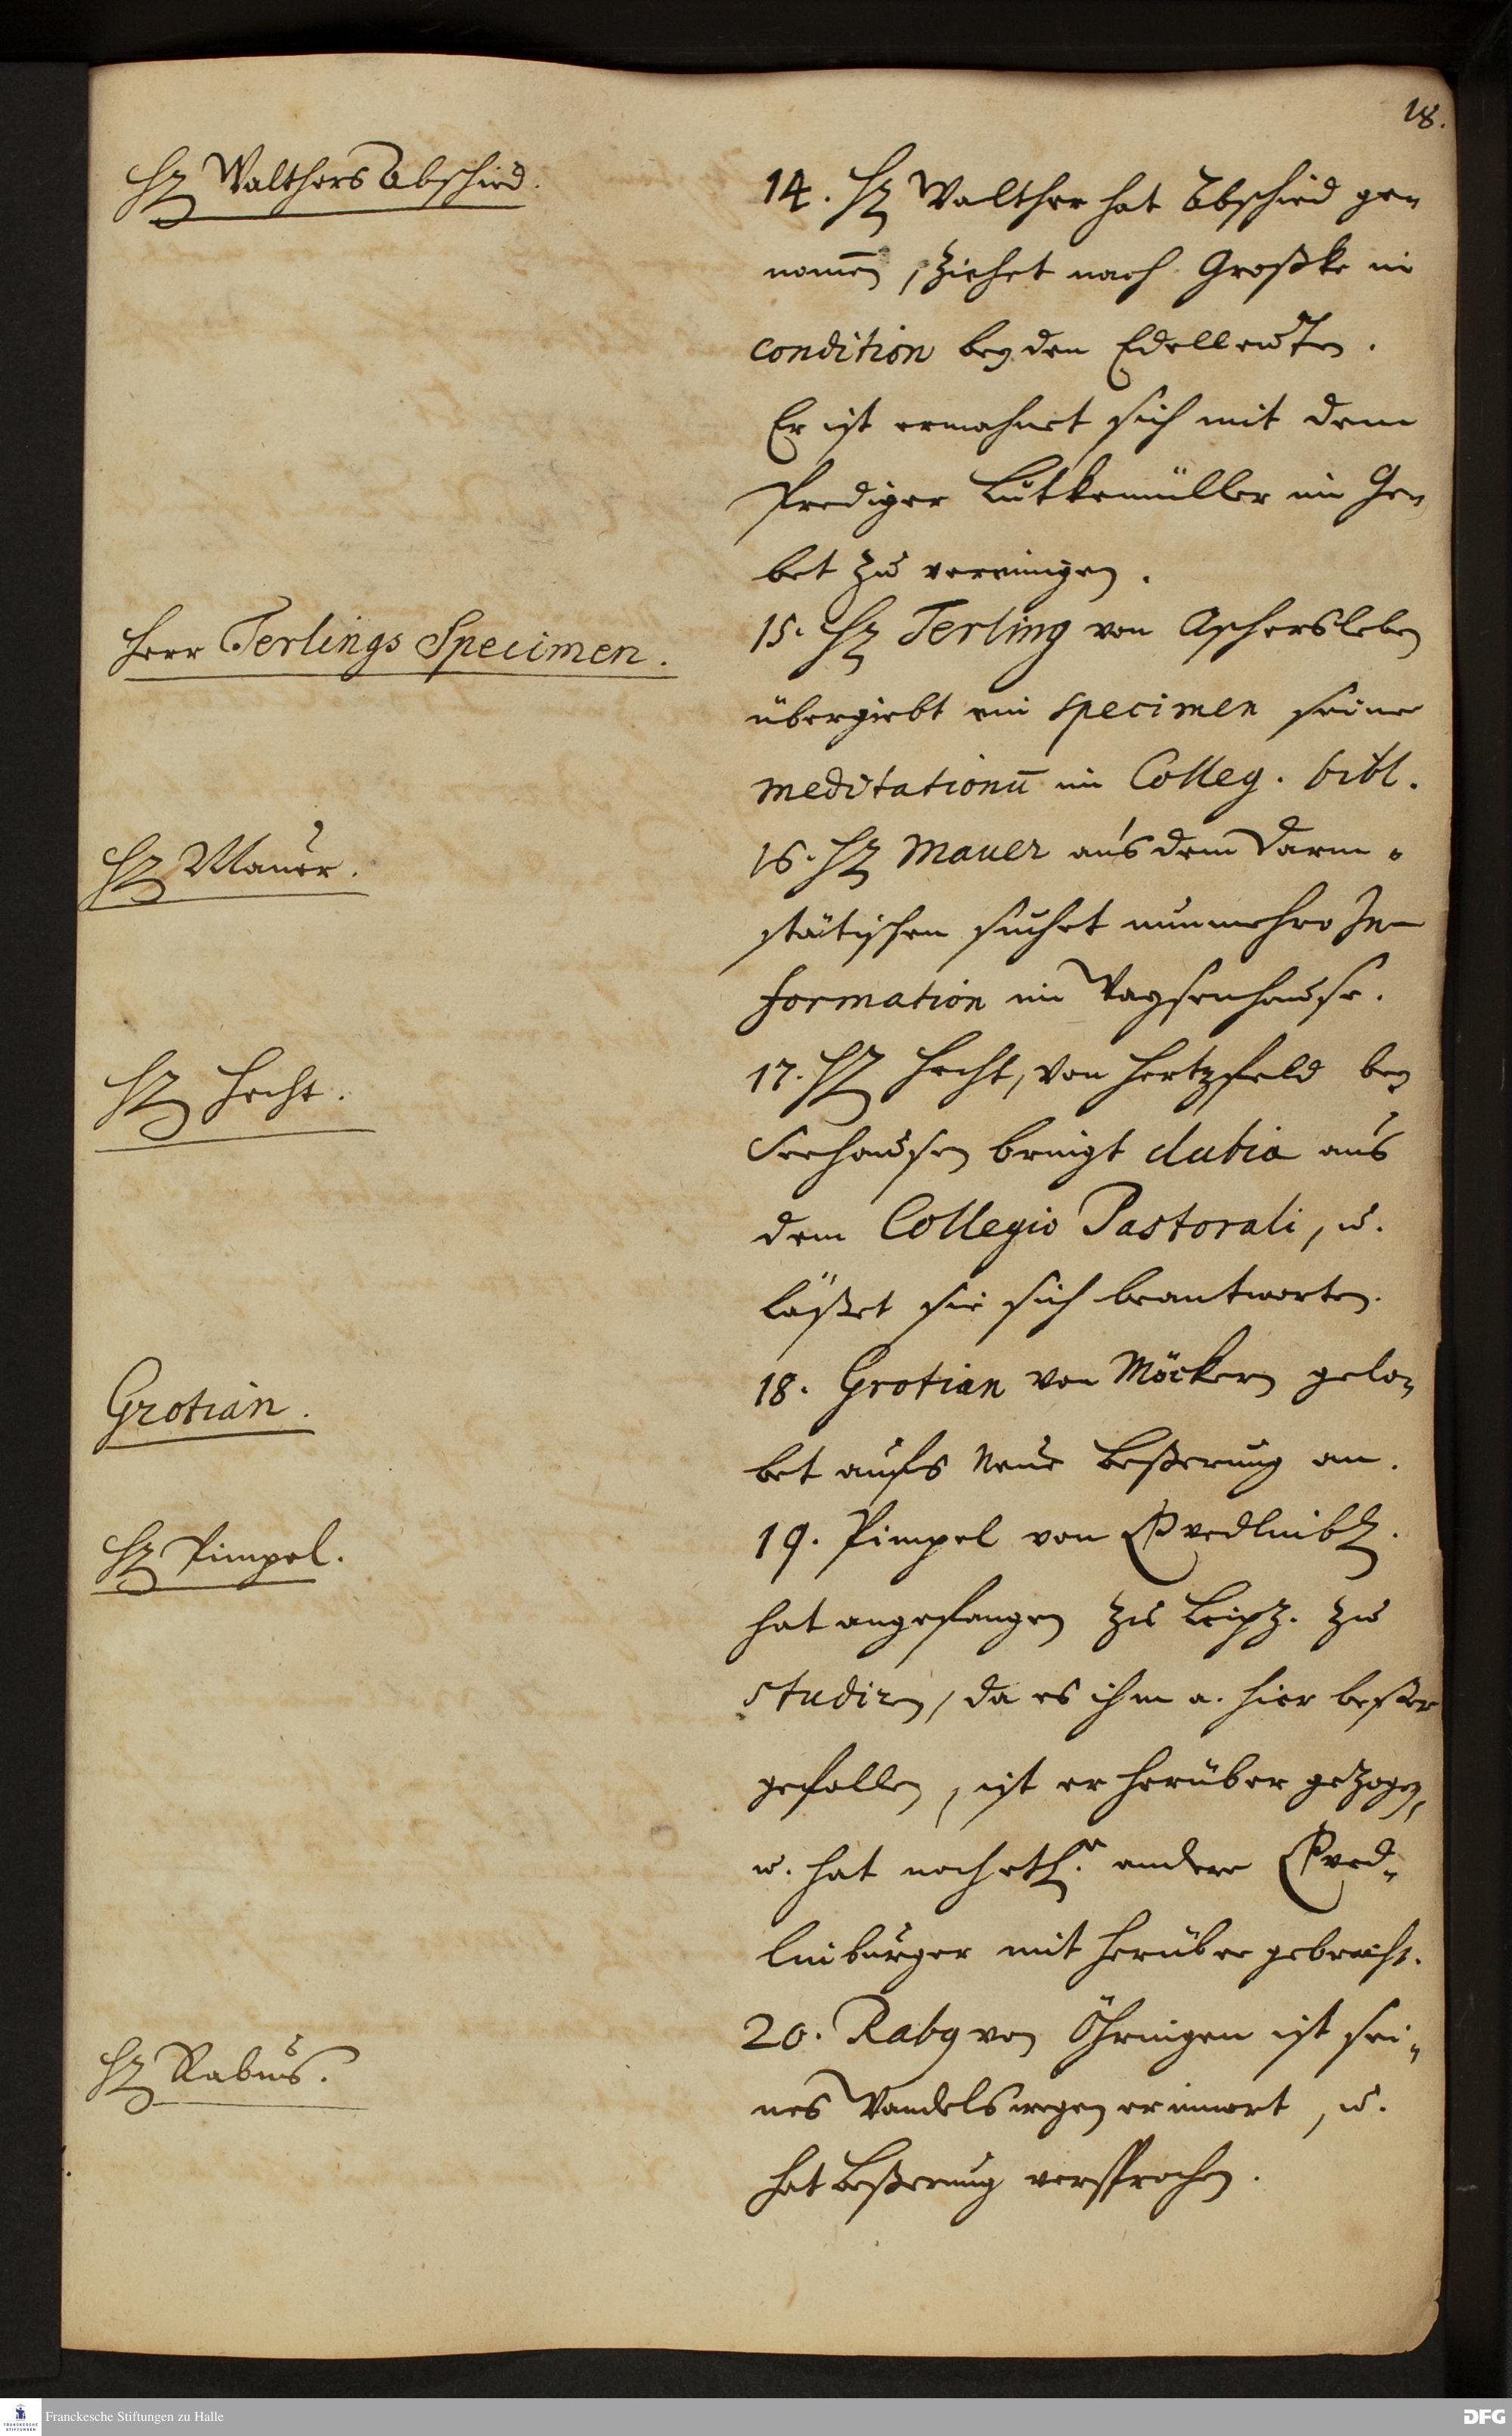 18.
Hr Walthers Abschied.
14. Hr Walther hat Abschied ge-
nom̄en, ziehet nach Großke in
condition bey den Edelleuten.
Er ist ermahnet sich mit dem
Prediger Lutkemüller im Ge-
bet zu vereinigen.
Herr Terlings Specimen.
15. Hr Terling von Aschersleben
übergiebt ein specimen seiner
meditationū im Colleg. bibl.
Hr Mauer.
16. Hr Mauer aus dem Darm-
stätischen suchet nunmehro In-
formation im Waysenhause.
Hr Hecht.
17. Hr Hecht, von Hertzfeld bey
Seehausen bringt dubia aus
dem Collegio Pastorali, u.
läßet sie sich beantworten.
Grotian.
18. Grotian von Möckern gelo-
bet aufs Neue Beßerung an.
Hr Pimpel.
19. Pimpel von Qvedlinb.
hat angefangen zu Leipz. zu
studiren, da es ihm a. hier beßer
gefallen, ist er herüber gezogen,
u. hat noch etl. andere Qved-
linburger mit herüber gebracht.
Hr Rabus.
20. Rabus von Öhringen ist sei-
nes Wandels wegen erinnert, u.
hat Beßerung versprochen.
Franckesche Stiftungen zu Halle
DFG